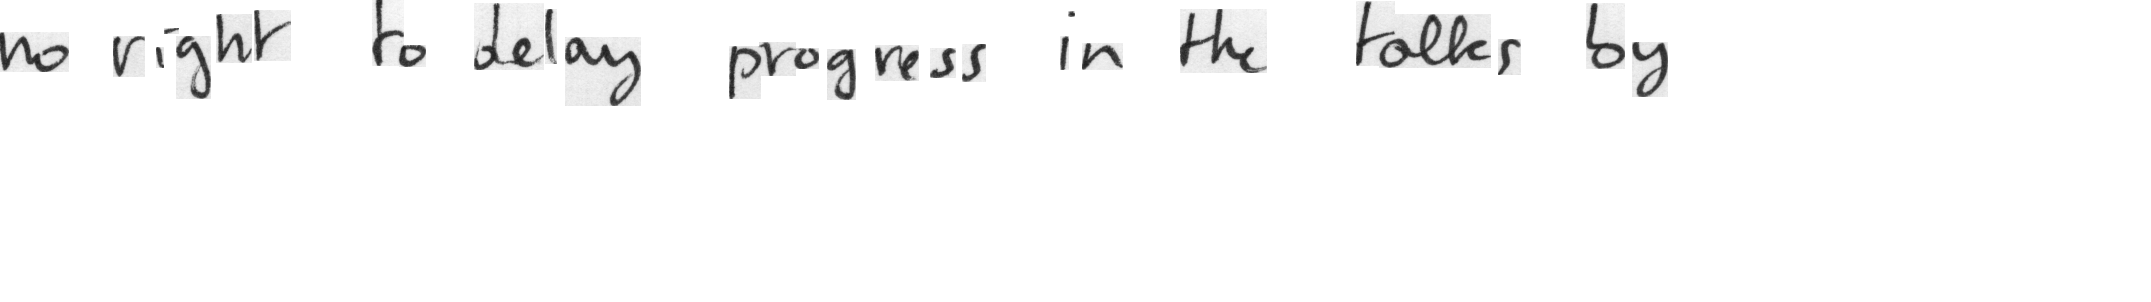 no right to delay progress in the talks by